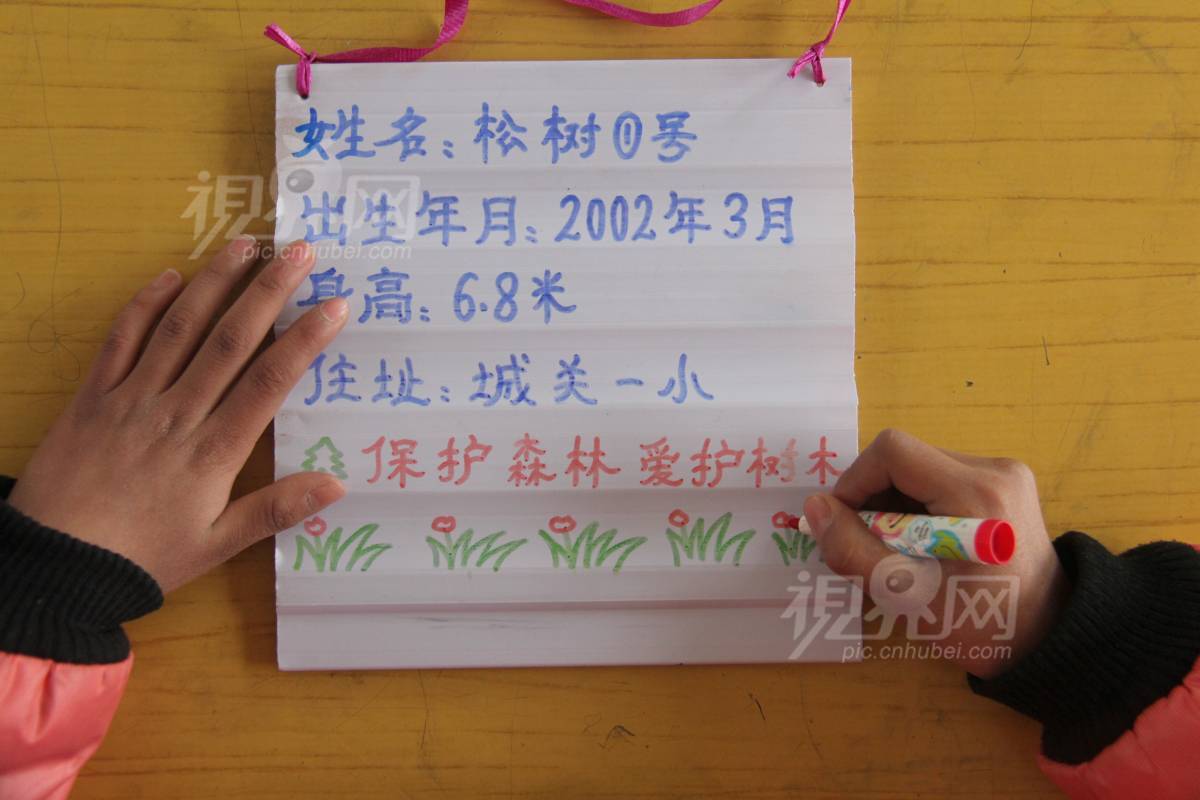 姓名：松树①号
視界网
出生年月：2002年3月
pic.cnhubei.com
身高：6.8米
住址：城关一小
保护森林 爱护树木
視界网
pic.cnhubei.com